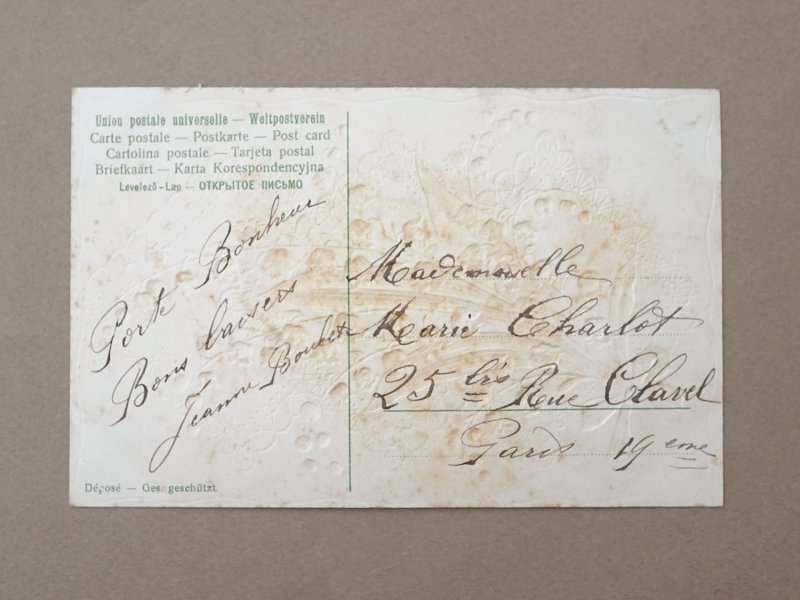 Union postale universelle — Weltpostverein
Carte postale — Postkarte — Post card
Cartolina postale — Tarjeta postal
Briefkaart — Karta Korespondencyjna
Levelező-Lap — ОТКРЫТОЕ ПИСЬМО
Porte Bonheur
Bons baisers
Jeanne
Mademoiselle
Marie Charlot
25 bis Rue Clavel
Paris 19 eme
Déposé — Ges. geschützt.